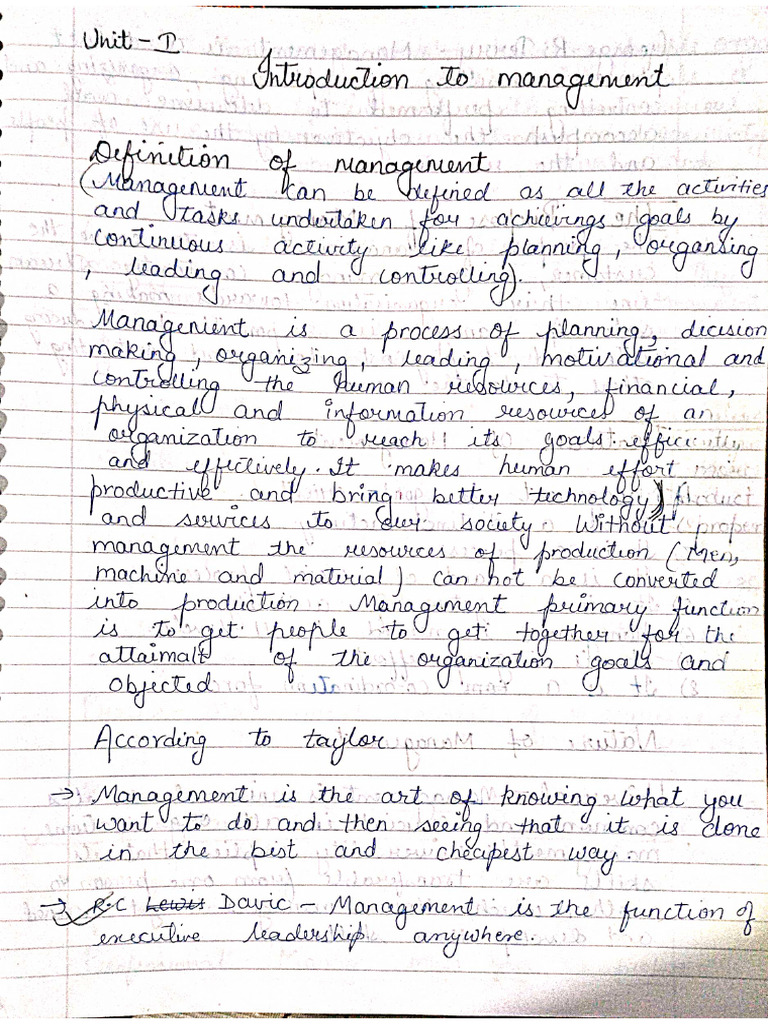 Unit - I
Introduction to management
Definition of management
(Management can be defined as all the activities
and tasks undertaken for achievings goals by
continuous activity like planning, organsing
, leading and controlling).
Management is a process of planning, dicision
making, organizing, leading, motivational and
controlling the human resources, financial,
physical and information resources of an
organization to reach its goals efficiently
and effectively. It makes human effort
productive and bring better technology, product
and services to our society without proper
management the resources of production (Men,
machine and material) can not be converted
into production. Management primary function
is to get people to get together for the
of the organization goals and
objected
According to taylor
→ Management is the art of knowing what you
want to do and then seeing that it is done
in the best and cheapest way.
→ R.C Lewis Davic - Management is the function of
executive leadership anywhere.